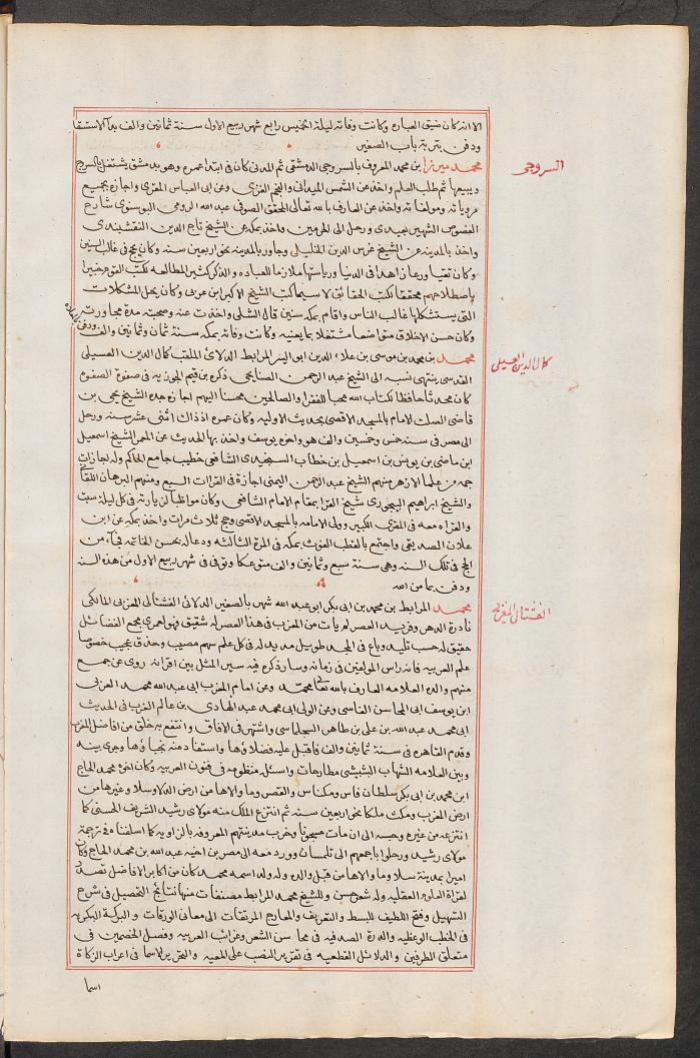 الا انه كان ضيق العباره وكانت وفاته ليلة الخميس رابع شهر ربيع الاول سنة ثمانين والف بداء الاستسقا
ودفن بتربة باب الصغير
محمد ميرزا بن محمد المعروف بالسروجى الدمشقى ثم المدنى كان فى ابتداء عمره وهو بدمشق يشتغل بالسروج
السروجى
ويبيعها ثم طلب العلم واخذ عن الشمس الميدانى والنجم الغزى وعن ابى العباس المقرى واجازه بجميع
مروياته ومولفاته واخذ عن العارف بالله تعالى المحقق الصوفى عبد الله الرومى البوسنوى شارح
الفصوص الشهير بعبدى ورحل الى الحرمين واخذ بمكة عن الشيخ تاج الدين النقشبندى
واخذ بالمدينه عن الشيخ غرس الدين الخليلى وجاور بالمدينه نحو اربعين سنه وكان يحج فى غالب السنين
وكان تقيا ورعا زاهدا فى الدنيا ورياستها ملازما للعباده والذكر كثير المطالعه لكتب القوم خبيرا
باصطلاحهم محققا لكتب الحقائق لا سيما كتب الشيخ الاكبر ابن عربى وكان يحل المشكلات
التى يستشكلها غالب الناس واقام بمكه سنين قال الشلى واخذت عنه وصحبته مدة مجاورته
وكان حسن الاخلاق متواضعا مشتغلا بما يعنيه وكانت وفاته بمكه سنة ثمان وثمانين والف ودفن
محمد بن محمد بن موسى بن علاء الدين ابو اليسر المرابط الدلائى الملقب كمال الدين العسيلى
كمال الدين العسيلى
القدسى ينتهى نسبه الى الشيخ عبد الرحمن الصنابحى ذكره بن قيم الجوزيه فى صفوة الصفوه
كان محدثا حافظا لكتاب الله محبا للفقرا والصالحين محسنا اليهم اجازه جده الشيخ يحيى بن
قاضى الصلت الامام بالمسجد الاقصى بحديث الاوليه وكان عمره اذ ذاك اثنى عشر سنه ورحل
الى مصر فى سنه خمس وخمسين والف هو واخوه يوسف واخذ بها الحديث عن المعمر الشيخ اسمعيل
ابن ماضى بن يونس بن اسمعيل بن خطاب السنجيدى الشافعى خطيب جامع الحاكم وله اجازات
جمه من علما الازهر منهم الشيخ عبد الرحمن اليمنى اجازه فى القراات السبع ومنهم البرهان اللقانى
والشيخ ابراهيم البيجورى شيخ القرا بمقام الامام الشافعى وكان مواظبا لزيارته فى كل ليلة سبت
والقراه معه فى المقرى الكبير وولى الامامه بالمسجد الاقصى وحج ثلاث مرات واخذ بمكة عن ابن
علان الصديقى واجتمع بالقطب الغوث بمكه فى المرة الثالثه ودعا له بحسن الخاتمه فجاء من
الحج فى تلك السنه وهى سنة سبع وثمانين والف متوعكا وتوفى فى شهر ربيع الاول من هذه السنه
ودفن بمامن الله
محمد المرابط بن محمد بن ابى بكر ابو عبد الله شهر بالصغير الدلائى الفشتالى المغربى المالكى
الفشتالى المغربى
نادرة الدهر وفريد العصر لم يات من المغرب فى هذا العصر له شقيق فهو لعمرى بجمع الفضائل
حقيق له حسب تليد وباع فى المجد طويل مديد له فى كل علم سهم مصيب وحذق عجيب خصوصا
علم العربيه فانه راس المولفين فى زمانه وسار ذكره فيه سير المثل بين اقرانه روى عن جمع
منهم والده العلامه العارف بالله تعالى محمد وعن امام المغرب ابى عبد الله محمد العربى
ابن يوسف ابى المحاسن الفاسى وعن الولى ابى محمد عبد الهادى بن عالم المغرب فى الحديث
ابى محمد عبد الله بن على بن طاهر السجلماسى واشتهر فى الافاق وانتفع به خلق من افاضل المغرب
وقدم القاهره فى سنة ثمانين والف فاقبل عليه فضلاؤها واستفاد منه نجباؤها وجرى بينه
وبين العلامه الشهاب البشبيشى مطارحات واسئله منظومه فى فنون العربيه وكان اخوه محمد الحاج
ابن محمد بن ابى بكر سلطان فاس ومكناس والقصر وما والاها من ارض الدلا وسلا وغيرها من
ارض المغرب ومكث ملكا نحو اربعين سنه ثم انتزع الملك منه مولاى رشيد الشريف الحسنى كما
انتزعه من غيره وحبسه الى ان مات مسجونا وخرب مدينتهم المعروفه بالزاويه كما اسلفناه فى ترجمة
مولاى رشيد ورحلوا باجمعهم الى تلمسان وورد معه الى مصر بن اخيه عبد الله بن محمد الحاج وكان
اميرا بمدينة سلا وما والاها من قبل والده وله ولد اسمه محمد كان من اكابر الافاضل تصدر
لقراة العلوم العقليه وله شعر حسن وللشيخ محمد المرابط مصنفات منها نتائج التحصيل فى شرح
التسهيل وفتح اللطيف للبسط والتعريف والمعارج المرتقات الى معانى الورقات والبركة البكريه
فى الخطب الوعظيه والدرة الصدفيه فى محاسن الشعر وغرائب العربيه وفصل الخصمين فى
متعلق الطرفين والدلائل القطعيه فى تقرير النصب على المعيه والتحرير الاسما فى اعراب الزكاة
اسما